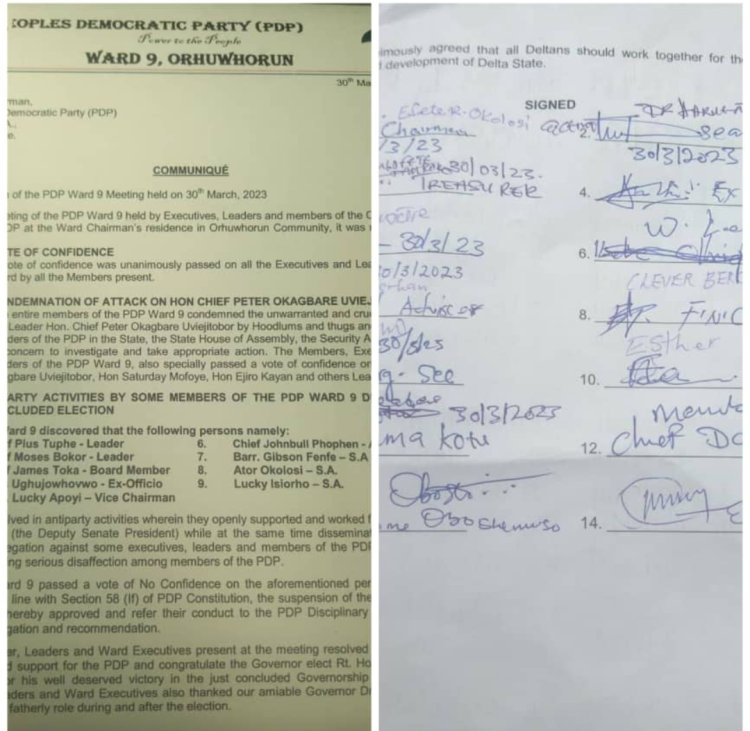 EOPLES DEMOCRATIC PARTY (PDP)
Power to the People
WARD 9, ORHUWHORUN
30th Ma
rman,
Democratic Party (PDP)
COMMUNIQUÉ
of the PDP Ward 9 Meeting held on 30th March, 2023
ting of the PDP Ward 9 held by Executives, Leaders and members of the
DP at the Ward Chairman's residence in Orhuwhorun Community, it was
TE OF CONFIDENCE
ote of confidence was unanimously passed on all the Executives and Lea
rd by all the Members present.
NDEMNATION OF ATTACK ON HON CHIEF PETER OKAGBARE UVIEJ
entire members of the PDP Ward 9 condemned the unwarranted and cru
Leader Hon. Chief Peter Okagbare Uviejitobor by Hoodlums and thugs an
ders of the PDP in the State, the State House of Assembly, the Security A
concern to investigate and take appropriate action. The Members, Exe
ders of the PDP Ward 9, also specially passed a vote of confidence or
gbare Uviejitobor, Hon Saturday Mofoye, Hon Ejiro Kayan and others Lea
ARTY ACTIVITIES BY SOME MEMBERS OF THE PDP WARD 9 D
CLUDED ELECTION
ard 9 discovered that the following persons namely:
f Pius Tuphe - Leader 6. Chief Johnbull Phophen -
f Moses Bokor - Leader 7. Barr. Gibson Fenfe – S.A
James Toka - Board Member 8. Ator Okolosi – S.A.
Ughujowhovwo - Ex-Officio 9. Lucky Isiorho – S.A.
Lucky Apoyi – Vice Chairman
lved in antiparty activities wherein they openly supported and worked f
(the Deputy Senate President) while at the same time disseminat
egation against some executives, leaders and members of the PDP
ng serious disaffection among members of the PDP.
ard 9 passed a vote of No Confidence on the aforementioned per
line with Section 58 (If) of PDP Constitution, the suspension of the
hereby approved and refer their conduct to the PDP Disciplinary
gation and recommendation.
er, Leaders and Ward Executives present at the meeting resolved
d support for the PDP and congratulate the Governor elect Rt. Ho
r his well deserved victory in the just concluded Governorship
ders and Ward Executives also thanked our amiable Governor Dr
fatherly role during and after the election.
imously agreed that all Deltans should work together for the
d development of Delta State.
SIGNED
Efete R. Okolosi
Chairman 2.
/3/23 30/3/2023
30/03/23.
TREASURER 4. Ex
W.
30/3/23 6.
30/3/2023 CLEVER BER
8. FINIC
30/3/23 Esther
See 10.
30/3/2023
ma Kotu 12. Chief DC
Obo Ehemuso 14.